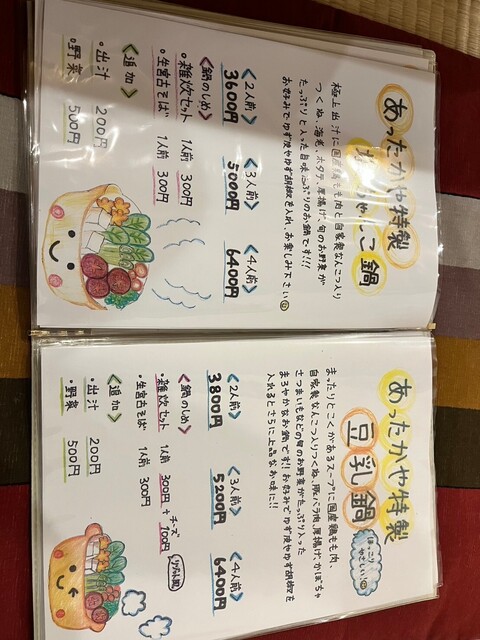 あったかや特製
ちゃんこ鍋
極上出汁に国産鶏もも肉と自家製なんこつ入り
つくね、海老、ホタテ、厚揚げ、旬のお野菜が
たっぷりと入った旨味たっぷりのお鍋です!!!
お好みでゆず皮やゆず胡椒を入れ、お楽しみ下さい
<2人前> <3人前> <4人前>
3600円 5000円 6400円
<鍋のしめ>
・雑炊セット 1人前 300円
・生宮古そば 1人前 300円
<追加>
・出汁 200円
・野菜 500円
あったかや特製
豆乳鍋
ほっこり
やさしい!
まったりとこくがあるスープに国産鶏もも肉、
自家製なんこつ入りつくね、豚バラ肉、厚揚げ、かぼちゃ
さつまいもなどの旬のお野菜がたっぷり入った
まろやかなお鍋です!お好みでゆず皮やゆず胡椒を
入れるとさらに上品なお味に!!
<2人前> <3人前> <4人前>
3800円 5200円 6400円
<鍋のしめ>
・雑炊セット 1人前 300円 + チーズ 100円 (リゾット風)
・生宮古そば 1人前 300円
<追加>
・出汁 200円
・野菜 500円